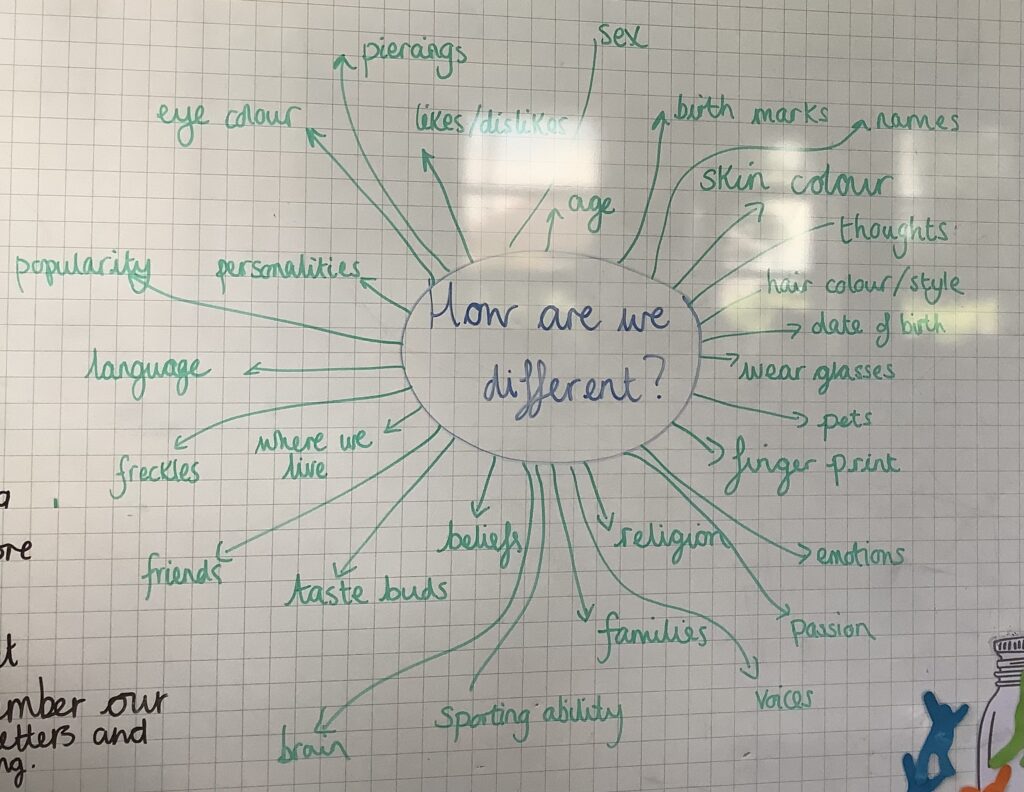 sex
piercings
eye colour
likes/dislikes
birth marks
names
skin colour
age
thoughts
popularity
personalities
hair colour/style
How are we
different?
date of birth
language
wear glasses
pets
where we
live
freckles
finger print
beliefs
religion
emotions
friends
taste buds
families
passion
voices
sporting ability
brain
our
and